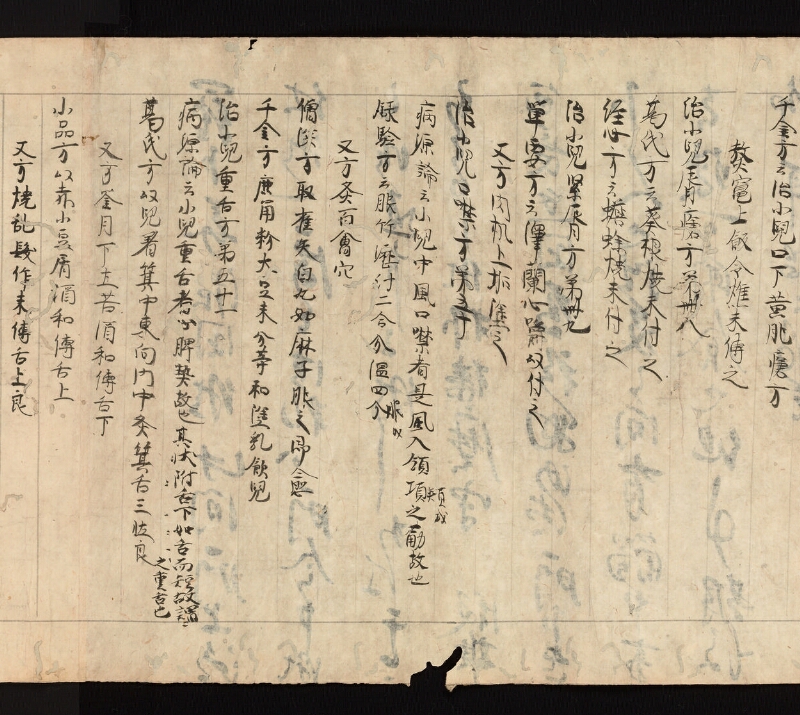 千金方云治小兒口下黄肌瘡方
熬竈上飯令燋末傅之
治小兒脣瘡方第卌八
葛氏方云葵根燒末付之
經心方云蟷蜂燒末付之
治小兒緊脣方第卌九
單要方云澤蘭心嚼以付之
又方肉机上垢塗之
治小兒口噤方第五十
病源論云小兒中風口噤者是風入頷項之筋故也
頰或
録驗方云服竹瀝汁二合分温四分
服以
又方灸而會穴
僧深方取雀矢白丸如麻子服之即愈
千金方鹿角粉大豆末分等和塗乳飲兒
治小兒重舌方第五十一
病源論云小兒重舌者心脾熱故也其状附舌下如舌而短故謂
之重舌也
葛氏方以兒着箕中東向内中灸箕舌三壮良
又方釜月下土苦酒和傅舌下
小品方以赤小豆屑酒和傅舌上
又方燒乱髮作末傅舌上良